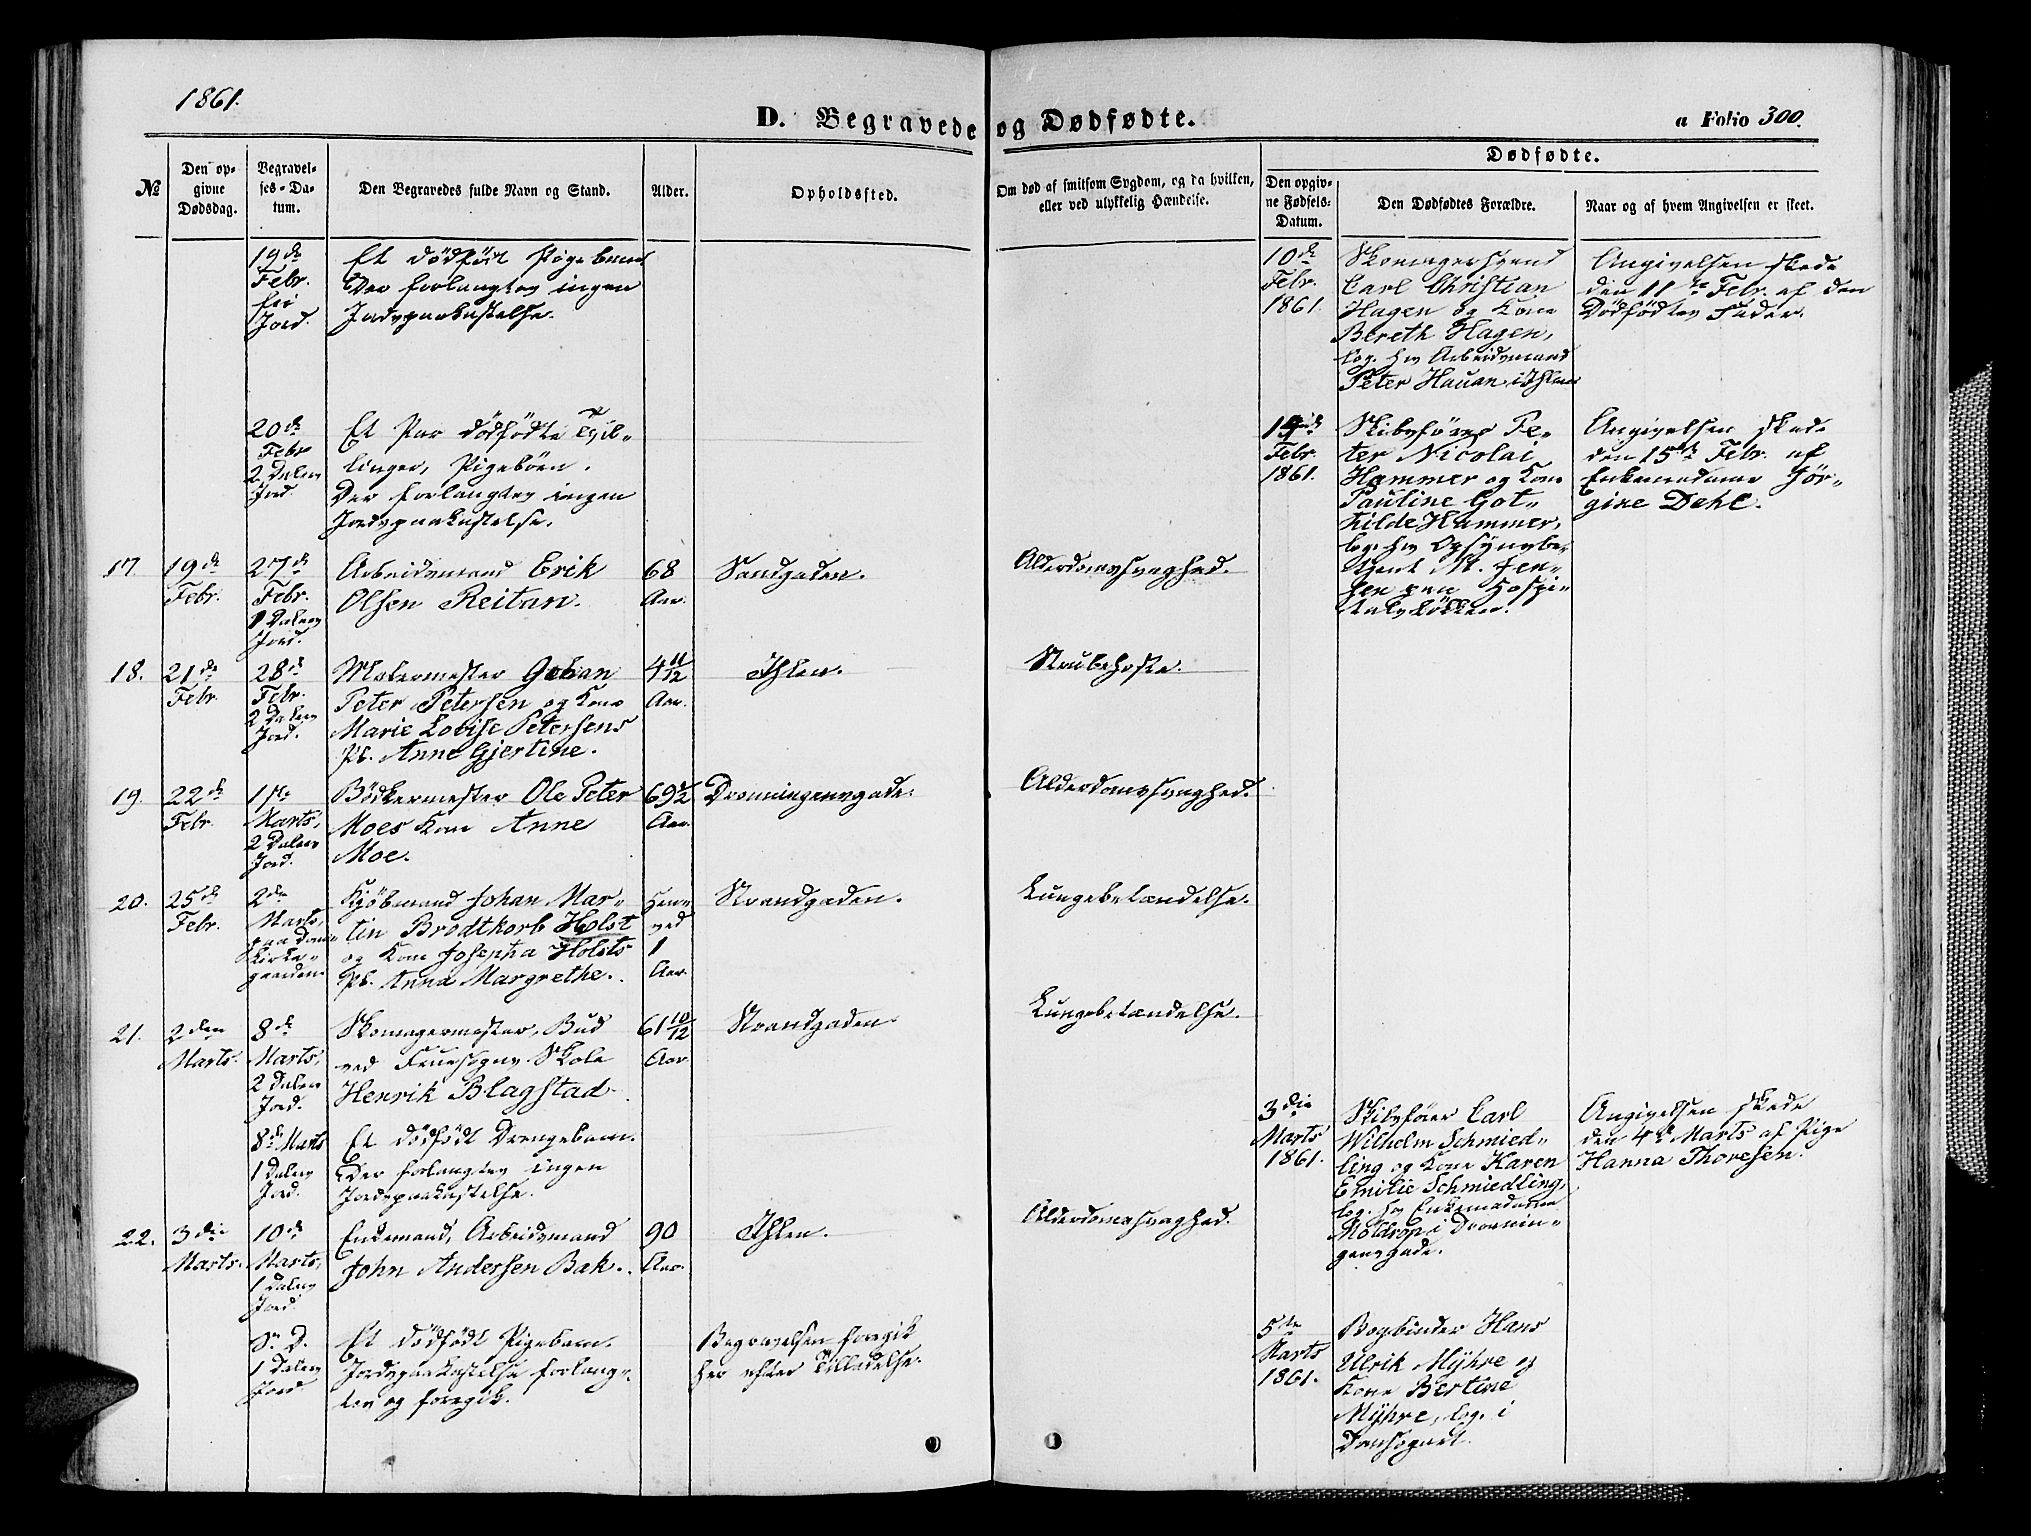 1861.
D. Begravede og Dødfødte.
a Folio 300.
№
Den opgivne Dødsdag.
Begravelses-Datum.
Den Begravedes fulde Navn og Stand.
Alder.
Opholdssted.
Om død af smitsom Sygdom, og da hvilken,
eller ved ulykkelig Hændelse.
Dødfødte.
Den opgivne Fødsels-Datum.
Den Dødfødtes Forældre.
Naar og af hvem Angivelsen er skeet.
19de
Febr.
fri
Jord.
Et dödfödt Pigebarn
Der forlangtes ingen
Jordspaakastelse.
10de
Febr.
1861.
Skomagersvend
Carl Christian
Hagen og Kone
Bereth Hagen,
log. hos Arbeidsmand
Peter Hauan i Ihlen
Angivelsen skede
den 11te Febr. af den
Dödfödtes Fader.
20de
Febr
2 Dalers
Jord.
Et Par dödfödte Tvil-
linger, Pigebörn.
Der forlangtes ingen
Jordspaakastelse.
Febr.
1861.
Skibsförer Pe-
ter Nicolai
Hammer og Kone
Pauline Got-
hilde Hammer,
log. hos Opsynsbe-
tjent M. Jen-
sen paa Hospi-
talslökken.
Angivelsen skede
den 15de Febr. af
Enkemadame Jör-
gine Dehl.
17.
19de
Febr.
27de
Febr.
1 Dalers
Jord.
Arbeidsmand Erik
Olsen Reitan.
68
Aar.
Sandgaden.
Alderdomssvaghed.
18.
21de
Febr.
28de
Febr.
2 Dalers
Jord.
Malermester Johan
Peter Petersen og Kone
Marie Lovise Petersens
Pb. Anne Gjertine.
4 11/12
Aar.
Ihlen.
Strubehoste.
19.
22de
Febr.
1ste
Marts,
2 Dalers
Jord.
Bödkermester Ole Peter
Moes Kone Anne
Moe.
69 1/2
Aar.
Dronningensgade.
Alderdomssvaghed.
20.
25de
Febr.
2den
Marts,
paa Dom-
kirke-
gaarden
Kjöbmand Johan Mar-
tin Brodtkorb Holst
og Kone Josepha Holsts
Pb. Anna Margrethe.
Hen-
ved
1
Aar.
Strandgaden.
Lungebetændelse.
21.
2den
Marts.
8de
Marts,
2 Dalers
Jord.
Skomagermester, Bud
ved Fruesogns Skole
Henrik Blagstad.
61 10/12
Aar.
Strandgaden.
Lungebetændelse.
8de Marts
1 Dalers
Jord.
Et dödfödt Drengebarn.
Der forlangtes ingen
Jordspaakastelse.
3die
Marts
1861.
Skibsförer Carl
Wilhelm Schmied-
ling og Kone Karen
Emilie Schmiedling,
log. hos Enkemadame
Möldrop i Dronnin-
gensgade.
Angivelsen skede
den 4de Marts af Pige
Hanna Thoresen.
22.
3die
Marts.
10de
Marts,
1 Dalers
Jord.
Enkemand, Arbeidsmand
John Andersen Bak.
90
Aar.
Ihlen.
Alderdomssvaghed.
S. D.
1 Dalers
Jord.
Et dödfödt Pigebarn.
Jordspaakastelse forlang-
tes og foregik.
Begravelsen foregik
her efter Tilladelse.
5te
Marts
1861.
Bogbinder Hans
Ulrik Myhre og
Kone Bertine
Myhre, log. i